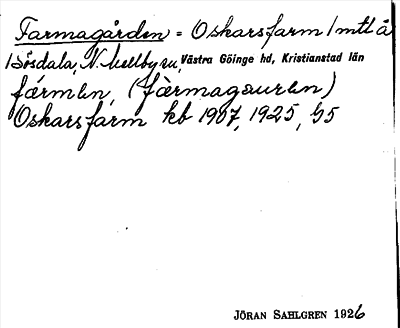 Farmagården = Oskarsfarm 1 mtl å
1 Sösdala, N. Mellby sn, Västra Göinge hd, Kristianstad län
fármen, (fàrmagauren)
Oskarsfarm kb 1907, 1925, 45
JÖRAN SAHLGREN 1926